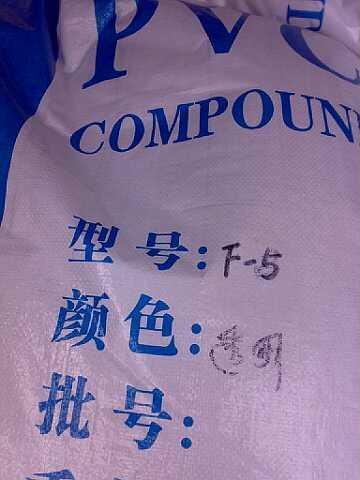 PVC
COMPOUN
型号：F-5
颜色：透明
批号：